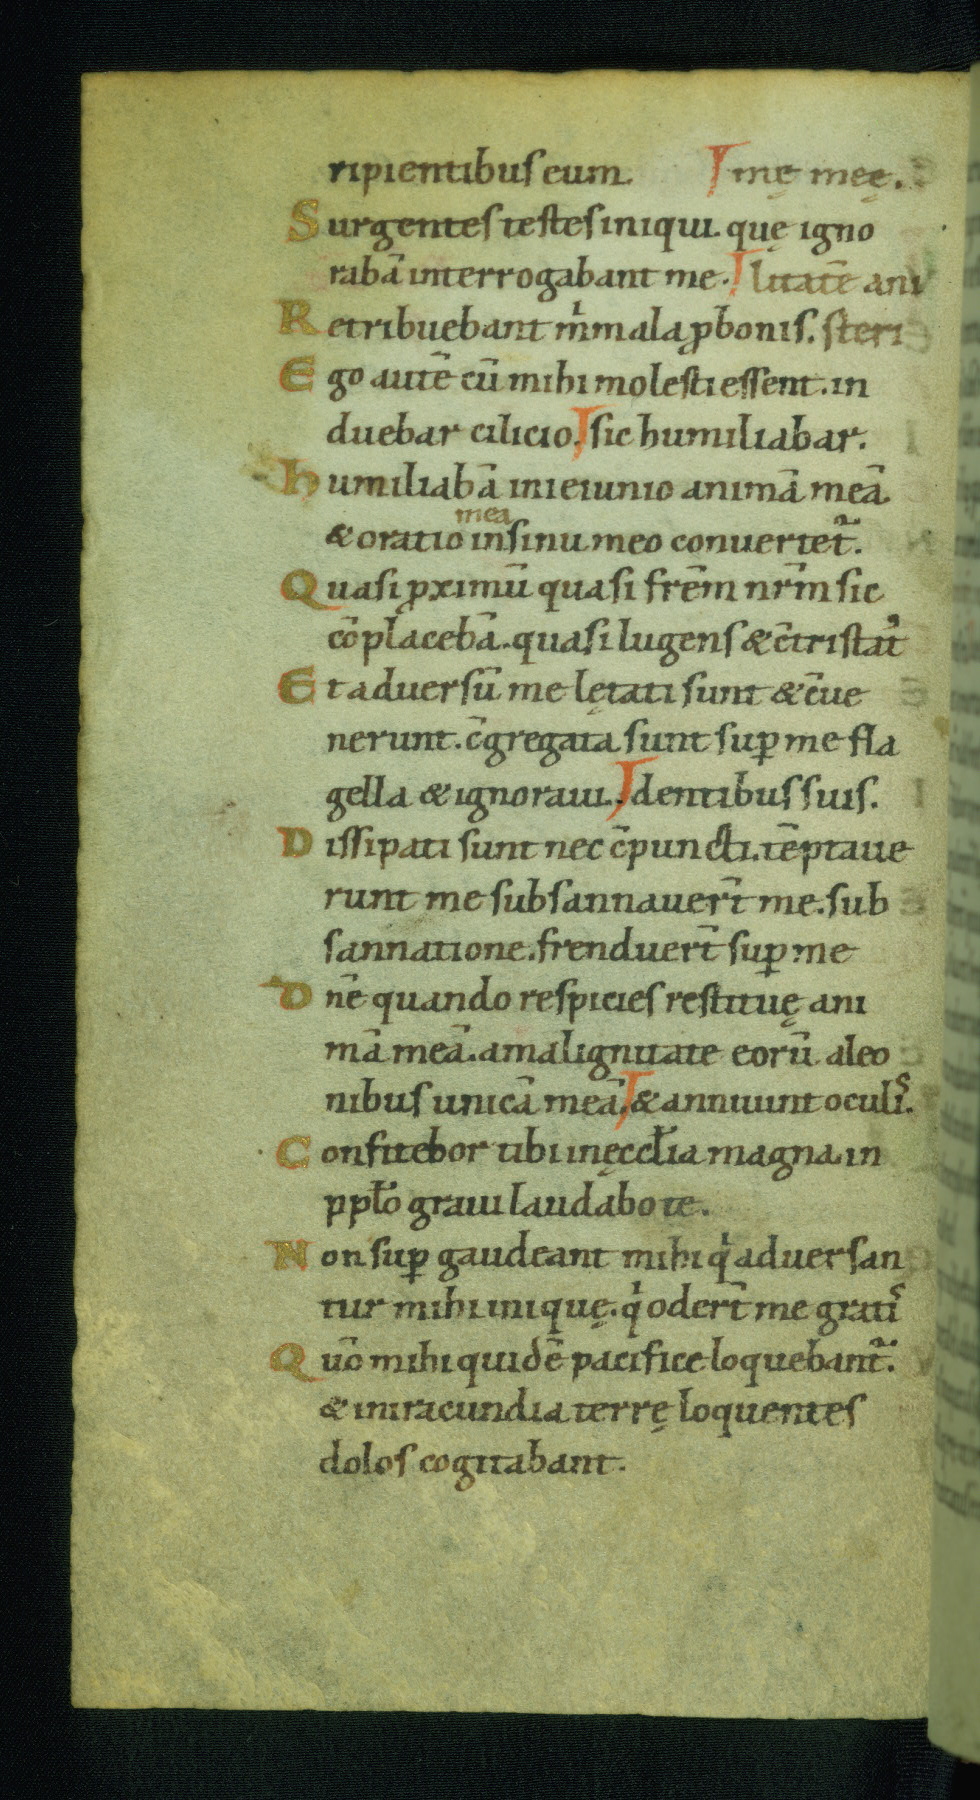 ripientibus eum. mę meę.
Surgentes testes iniqui. quę igno
rabā interrogabant me. litatē ani
Retribuebant m̓ mala ꝓ bonis. steri
Ego autē cū mihi molesti essent. in
duebar cilicio. sic humiliabar.
humiliabā in ieiunio animā meā
mea
& oratio in sinu meo conuertet᷑.
Quasi ꝓximū quasi frēm nr̄m sic
cōplacebā. quasi lugens & c̄tristat᷑
Et aduersū me lętati sunt & c̄ue
nerunt. c̄gregata sunt suꝑ me fla
gella & ignoraui. dentibus suis.
Dissipati sunt nec c̄puncti. tēptaue
runt me subsannauer̄t me. sub
sannatione. frenduer̄t suꝑ me
Dn̄e quando respicies restituę ani
mā meā. a malignitate eorū a leo
nibus unicā meā. & annuunt oculis.
Confitebor tibi in ęccłia magna. in
ppło graui laudabo te.
Non suꝑ gaudeant mihi q̓ aduersan
tur mihi inique. q̓ oder̄t me gratis
Quō mihi quidē pacifice loquebant᷑.
& in iracundia terrę loquentes
dolos cogitabant.